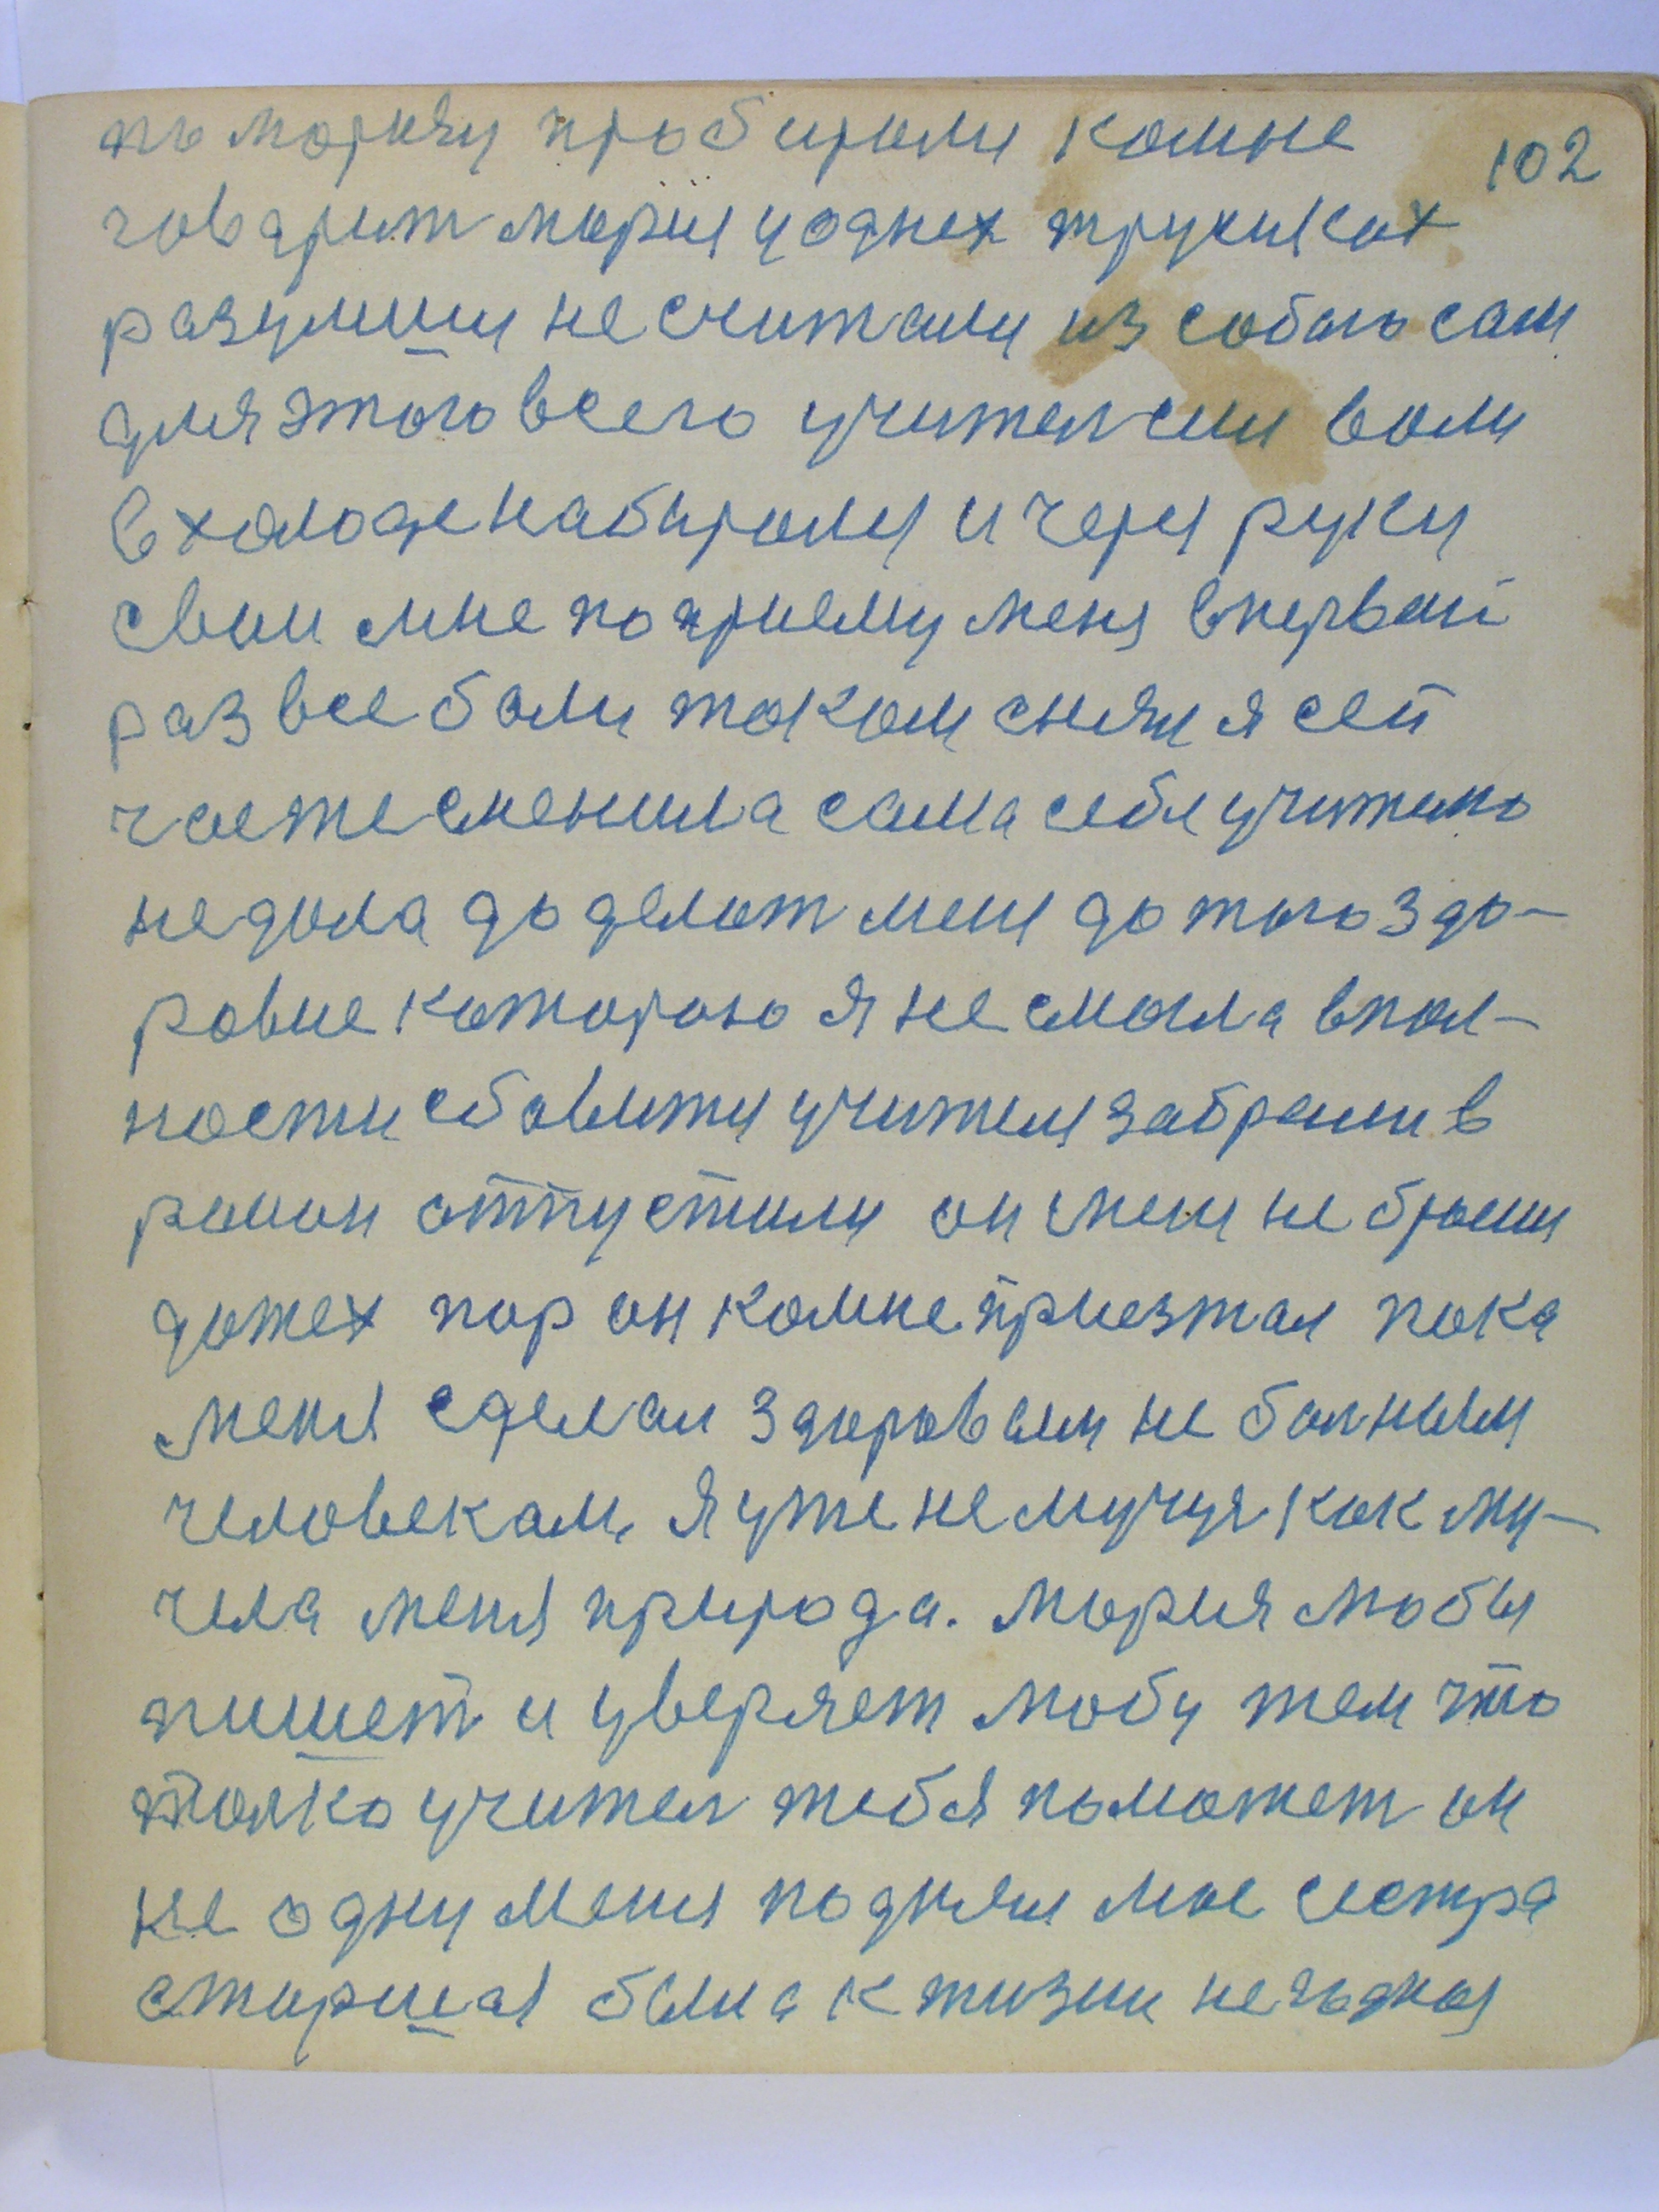 102
по морозу пробирали комне
говарит мория у однех трусиках
разумили не считали из собою сам
для этого всего учител сил воли
в холоде набирали и через руки
свои мне по приему меня впервай
раз все боли током снял я сей
час же сменила сама себя учителю
не дала до делат мени до того здо-
ровие которою я не смогла впол-
ности ставити учителя забрали в
ранон отпустили он мени не броси
дотех пор он комне приезжал пока
меня сделал здоровам не болным
человекам, я уже не мучуя как му-
чела меня природа. мория мобы
пишет и уверяет мобу тем что
толко учител тебя поможет он
не одну меня поднял мне сестра
старшая была к жизни негодная